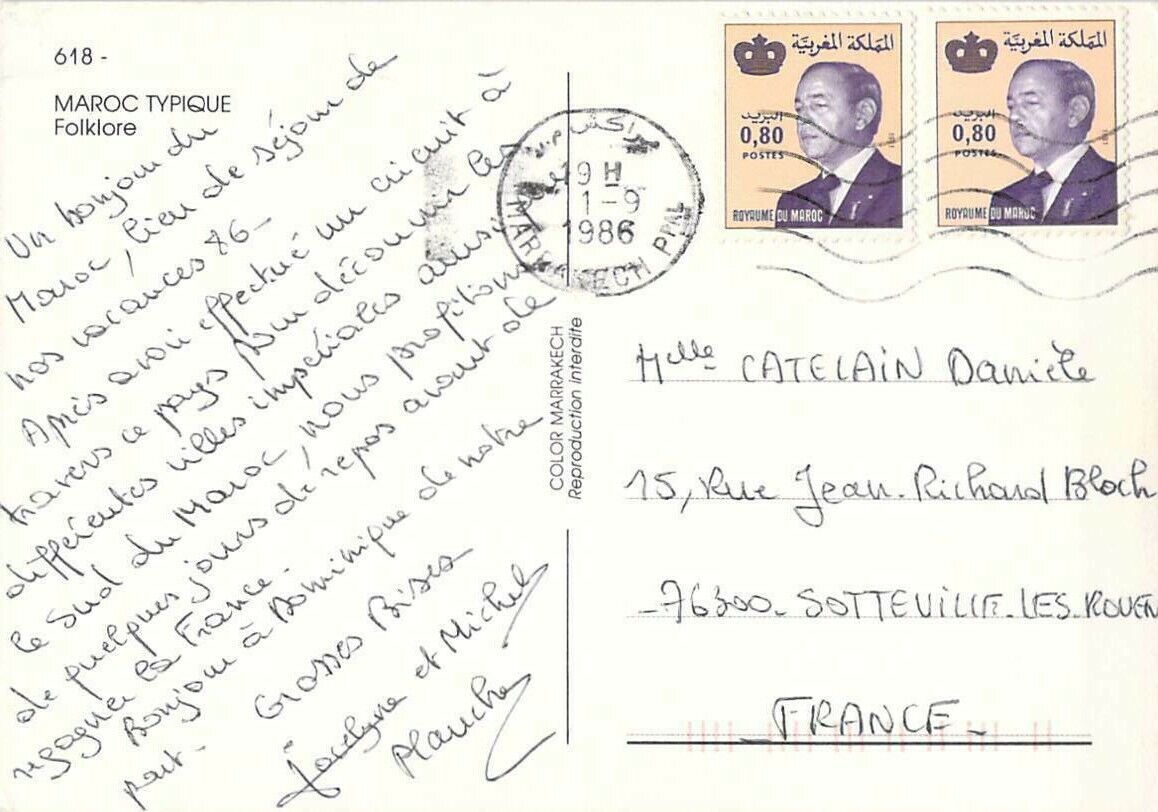 618 -
MAROC TYPIQUE
Folklore
Un bonjour du
Maroc, lieu de séjour de
nos vacances 86 -
Après avoir effectué un circuit à
travers ce pays pour découvrir les
différentes villes impériales ainsi que
le Sud du Maroc, nous profitons
de quelques jours de repos avant de
regagner la France.
Bonjour à Dominique de notre
part -
Grosses Bises
Jocelyne et Michel
COLOR MARRAKECH
Reproduction interdite
مراكش
19 H
1-9
1986
MARRAKECH PPAL
المملكة المغربية
البريد
0,80
POSTES
ROYAUME DU MAROC
المملكة المغربية
البريد
0,80
POSTES
ROYAUME DU MAROC
Melle CATELAIN Danièle
15, Rue Jean-Richard Bloch
-76300- SOTTEVILLE-LES-ROUEN
- FRANCE -